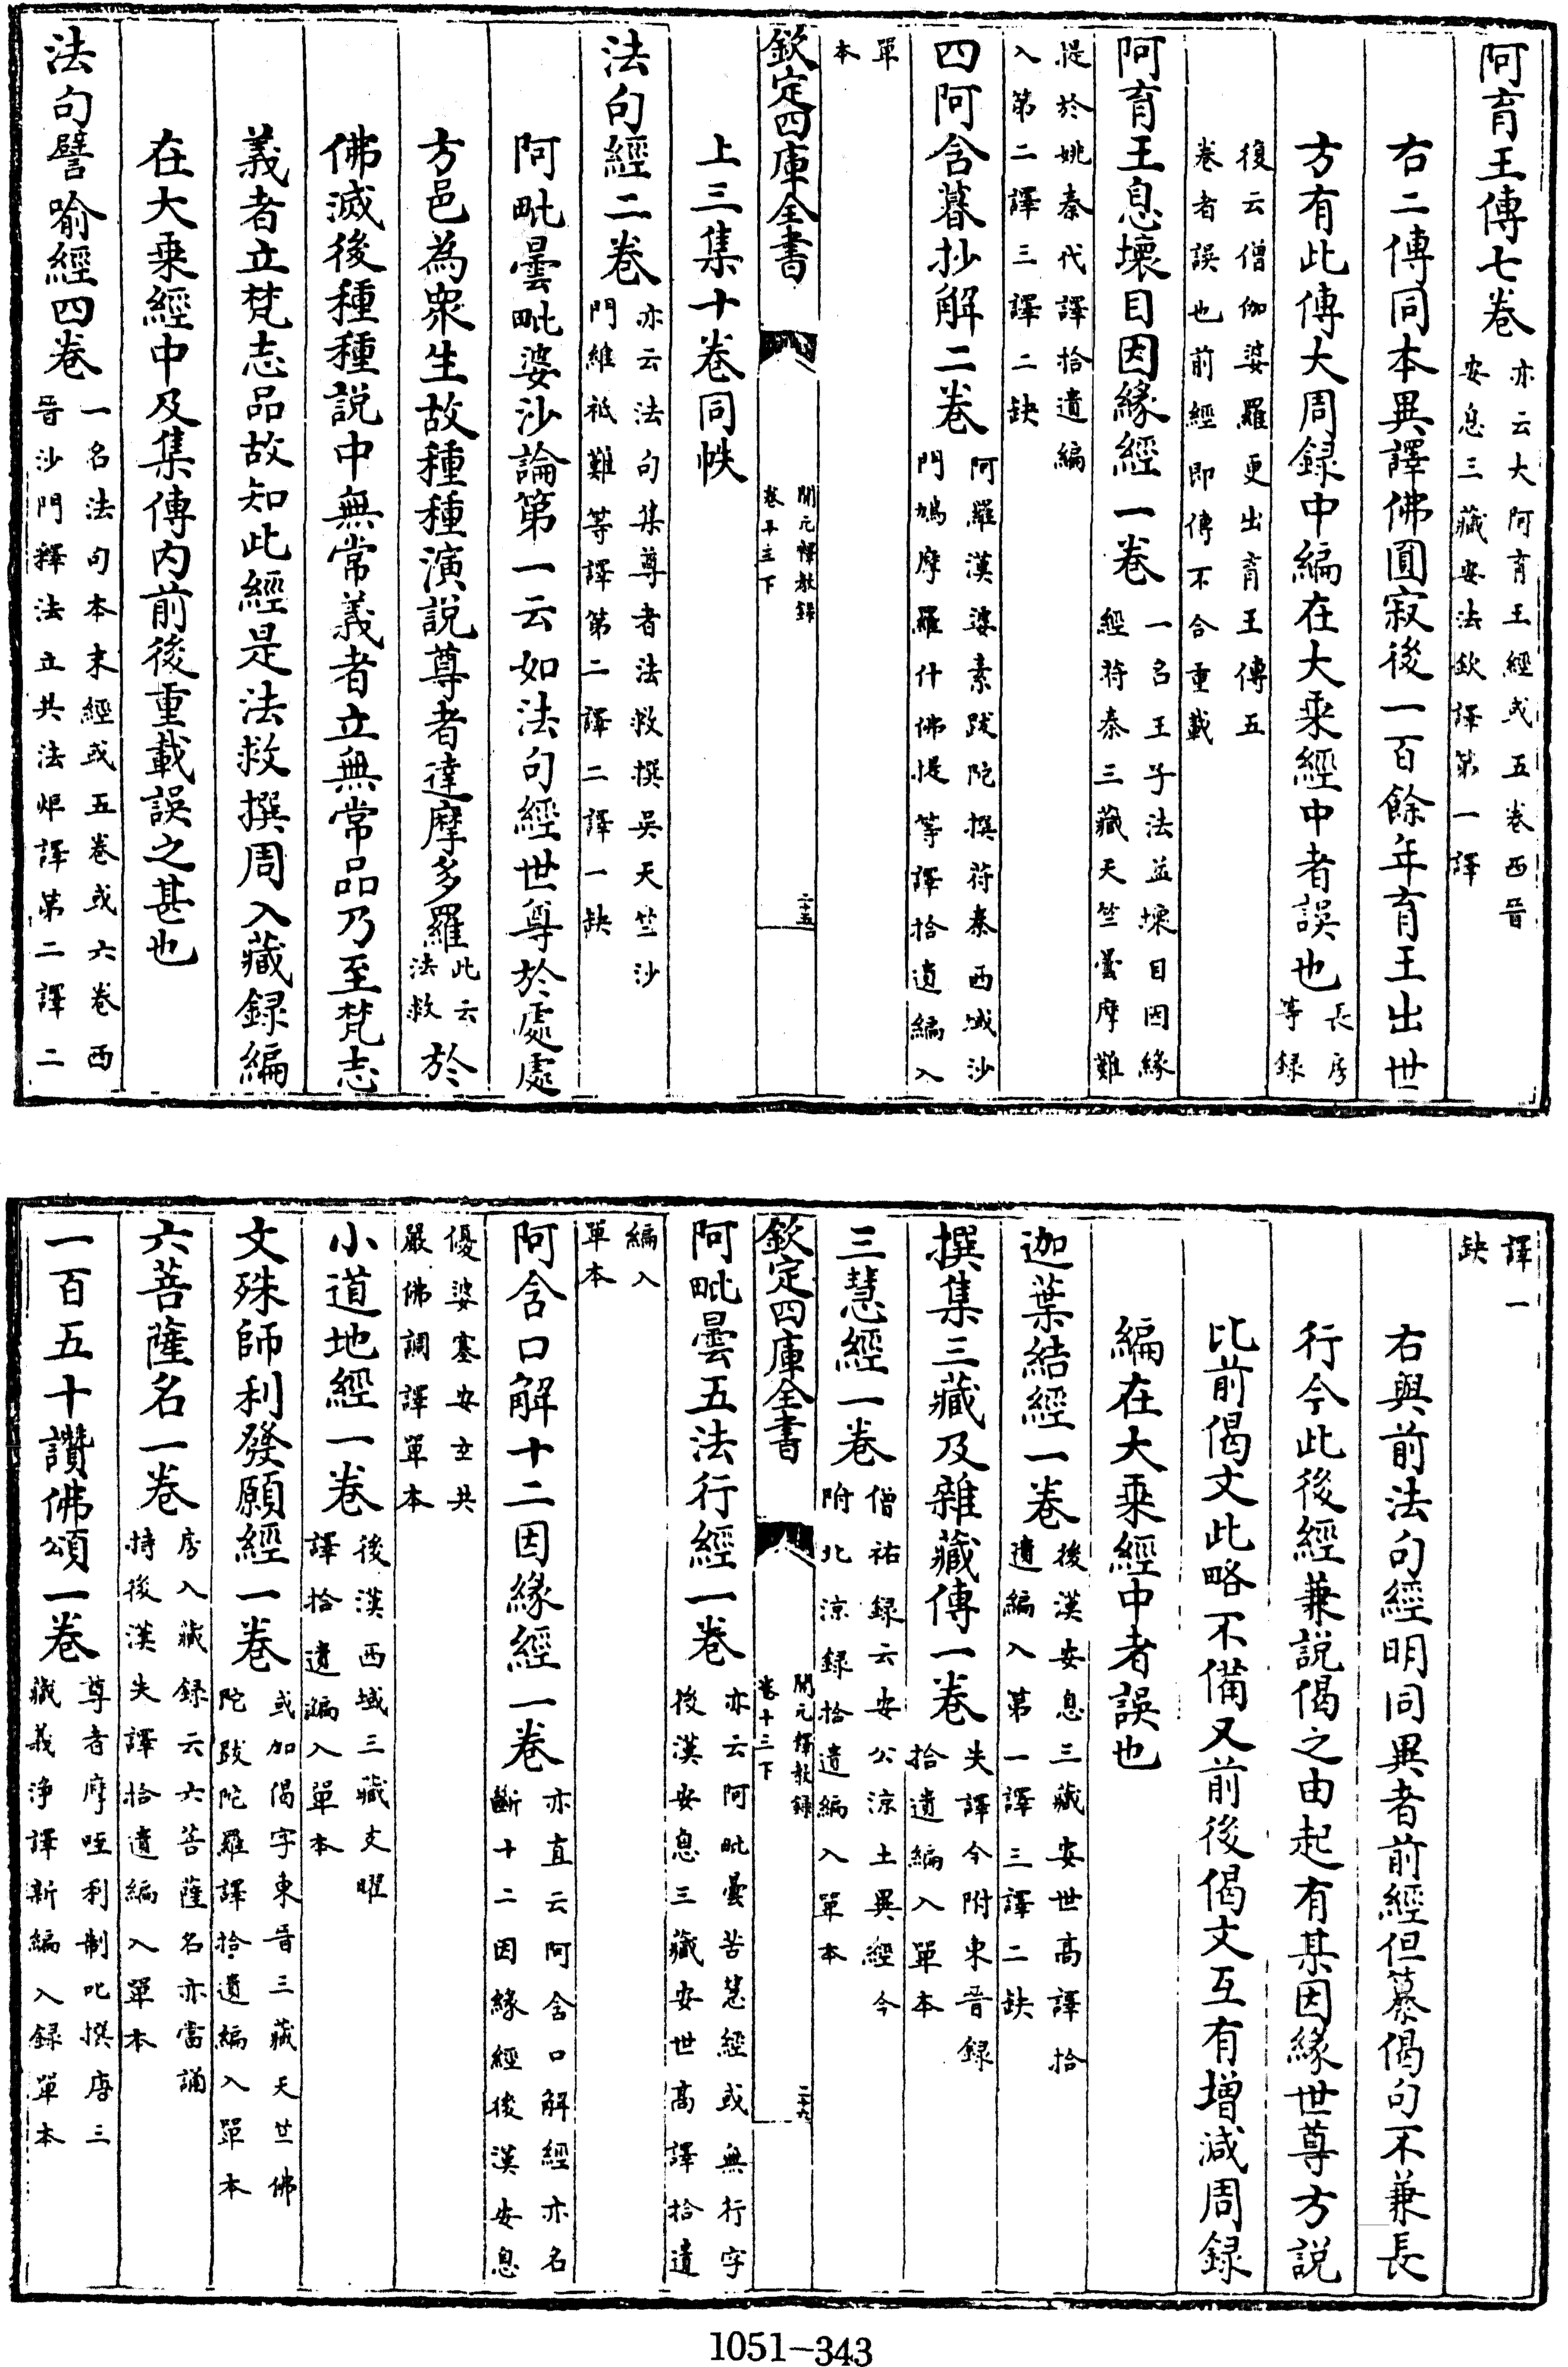 阿育王傳七卷亦云大阿育王經或五卷西晉安息三藏安法欽譯第一譯
右二傳同本異譯佛圓寂後一百餘年育王出世
方有此傳大周録中編在大乘經中者誤也長房等録
復云僧伽婆羅更出育王傳五卷者誤也前經即傳不合重載
阿育王息壞目因緣經一卷一名王子法益壞目因緣經符秦三藏天竺曇摩難
提於姚秦代譯拾遺編入第二譯三譯二缺
四阿含暮抄解二卷阿羅漢婆素跋陀撰苻秦西域沙門鳩摩羅什佛提等譯拾遺編入
單本
欽定四庫全書
開元釋教録卷十三下
二十五
上三集十卷同帙
法句經二卷亦云法句集尊者法救撰吳天竺沙門維祇難等譯第二譯二譯一缺
阿毗曇毗婆沙論第一云如法句經世尊於處處
方邑為衆生故種種演説尊者達摩多羅此云法救於
佛滅後種種説中無常義者立無常品乃至梵志
義者立梵志品故知此經是法救撰周入藏録編
在大乘經中及集傳内前後重載誤之甚也
法句譬喻經四卷一名法句本末經或五卷或六卷西晉沙門釋法立共法炬譯第二譯二
譯一缺
右與前法句經明同異者前經但纂偈句不兼長
行今此後經兼説偈之由起有某因緣世尊方説
比前偈文此略不備又前後偈文互有增減周録
編在大乘經中者誤也
迦葉結經一卷後漢安息三藏安世高譯拾遺編入第一譯三譯二缺
撰集三藏及雜藏傳一卷失譯今附東晉録拾遺編入單本
三慧經一卷僧祐録云安公涼土異經今附北涼録拾遺編入單本
欽定四庫全書
開元釋教録卷十三下
二十六
阿毗曇五法行經一卷亦云阿毗曇苦慧經或無行字後漢安息三藏安世高譯拾遺
編入單本
阿含口解十二因緣經一卷亦直云阿含口解經亦名斷十二因緣經後漢安息
優婆塞安玄共嚴佛調譯單本
小道地經一卷後漢西域三藏支曜譯拾遺編入單本
文殊師利發願經一卷或加偈字東晉三藏天竺佛陀跋陀羅譯拾遺編入單本
六菩薩名一卷房入藏録云六菩薩名亦當誦持後漢失譯拾遺編入單本
一百五十讚佛頌一卷尊者摩咥利制叱撰唐三藏義淨譯新編入録單本
1051-343